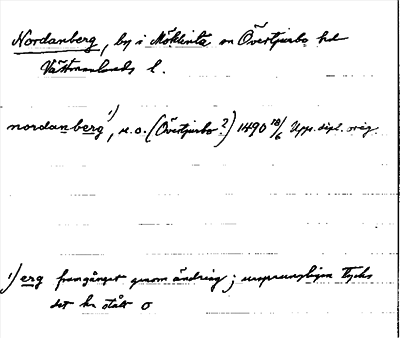 Nordanberg, by i Möklinta sn Övertjurbo hd
Västmanlands l.
nordanberg¹⁾, u.o. (Övertjurbo?) 1490 18/6 Upps. dipl. orig.
¹⁾ erg framgånget genom ändring; ursprungligen tycks
det ha stått o